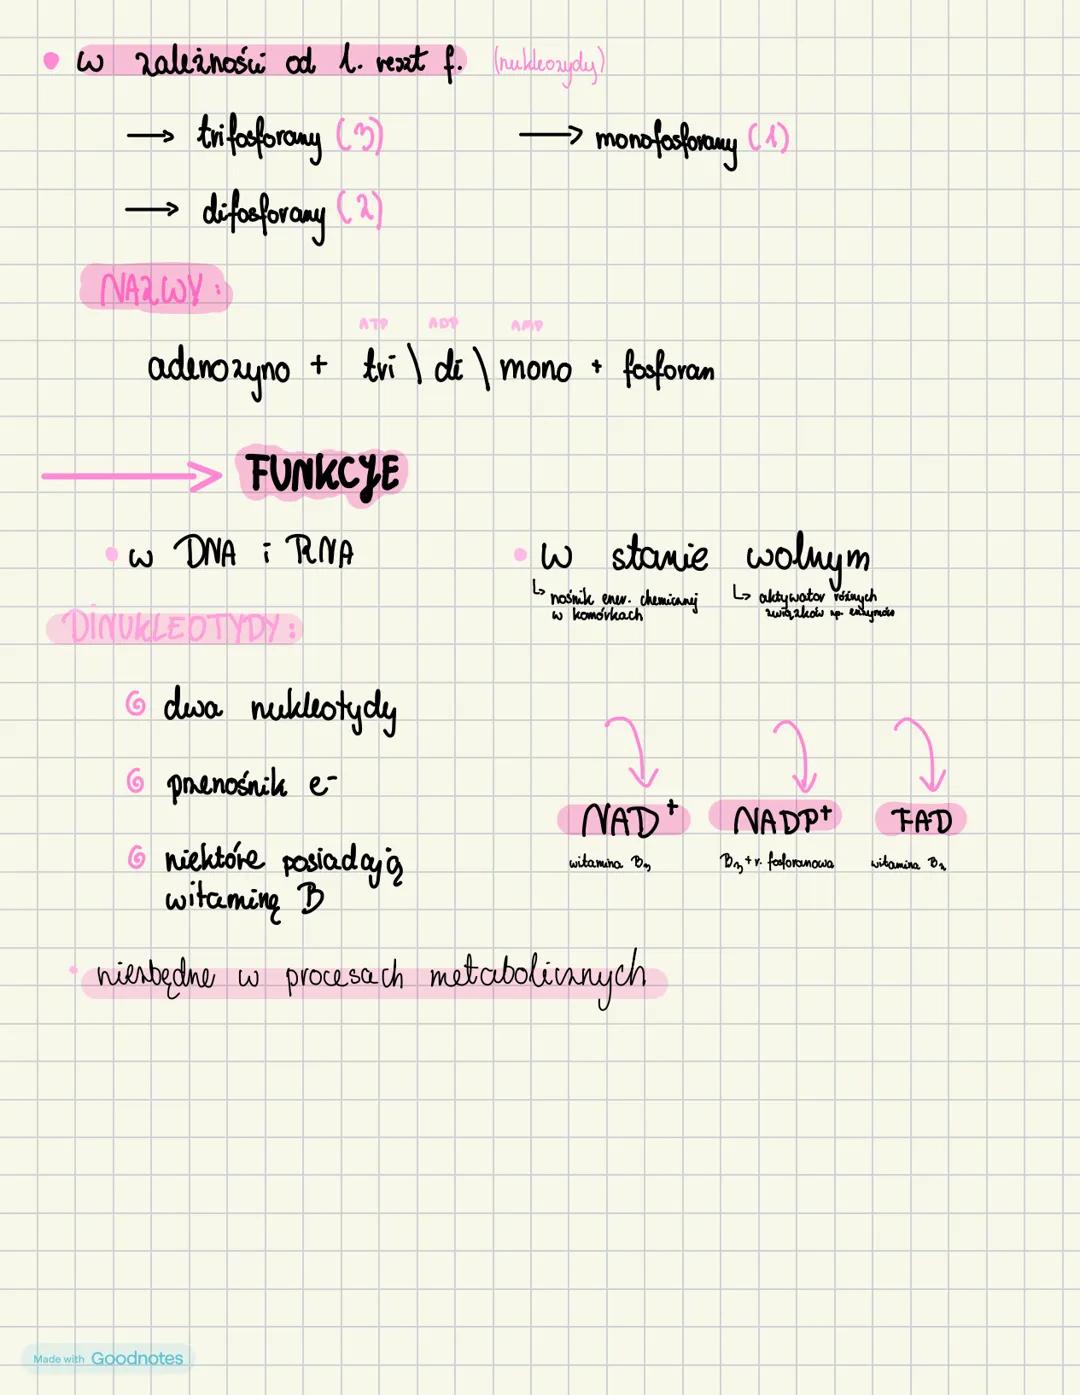 • w zależności od l. reszt f. (nukleozydy)
→ trifosforany (3) → monofosforany (1)
→ difosforany (2)
NAZWY:
ATP ADP AMP
adenozyno + tri \ di \ mono + fosforan
→ FUNKCJE
• w DNA i RNA • w stanie wolnym
↳ nośnik ener. chemicznej w komórkach
↳ aktywator różnych związków np. enzymów
DINUKLEOTYDY:
dwa nukleotydy
przenośnik e-
NAD+ NADP+ FAD
niektóre posiadają witaminę B
witamina B3 B3 + r. fosforanowa witamina B2
• niezbędne w procesach metabolicznych
Made with Goodnotes